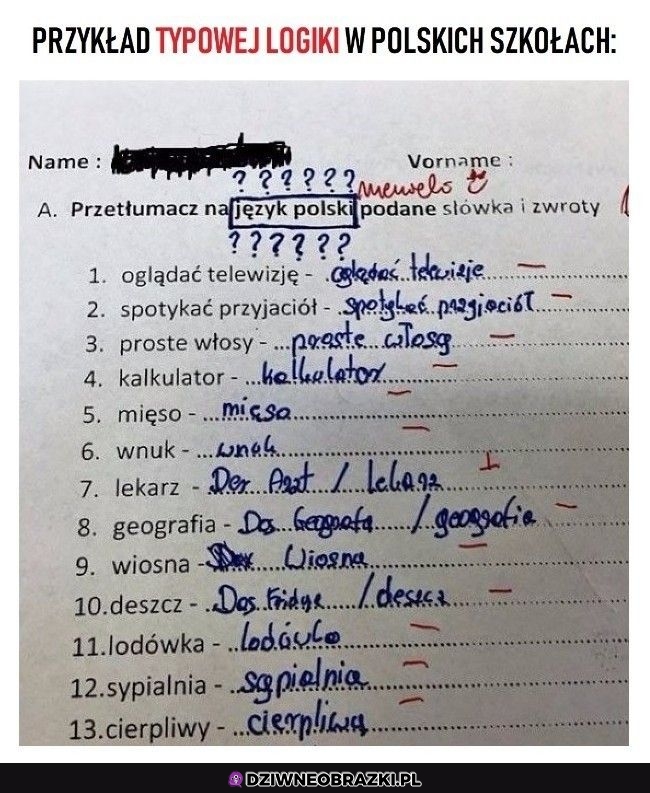 PRZYKŁAD TYPOWEJ LOGIKI W POLSKICH SZKOŁACH:
Name : Vorname :
? ? ? ? ? ?
A. Przetłumacz na język polski podane słówka i zwroty
? ? ? ? ? ?
1. oglądać telewizję - oglądać telewizję
2. spotykać przyjaciół - spotykać przyjaciół
3. proste włosy - proste włosy
4. kalkulator - kalkulator
5. mięso - mięso
6. wnuk - wnuk
7. lekarz - Der Arzt / lekarz
8. geografia - Das / geografia
9. wiosna - Wiosna
10.deszcz - Das Fridge / deszcz
11.lodówka - lodówka
12.sypialnia - sypialnia
13.cierpliwy - cierpliwy
DZIWNEOBRAZKI.PL